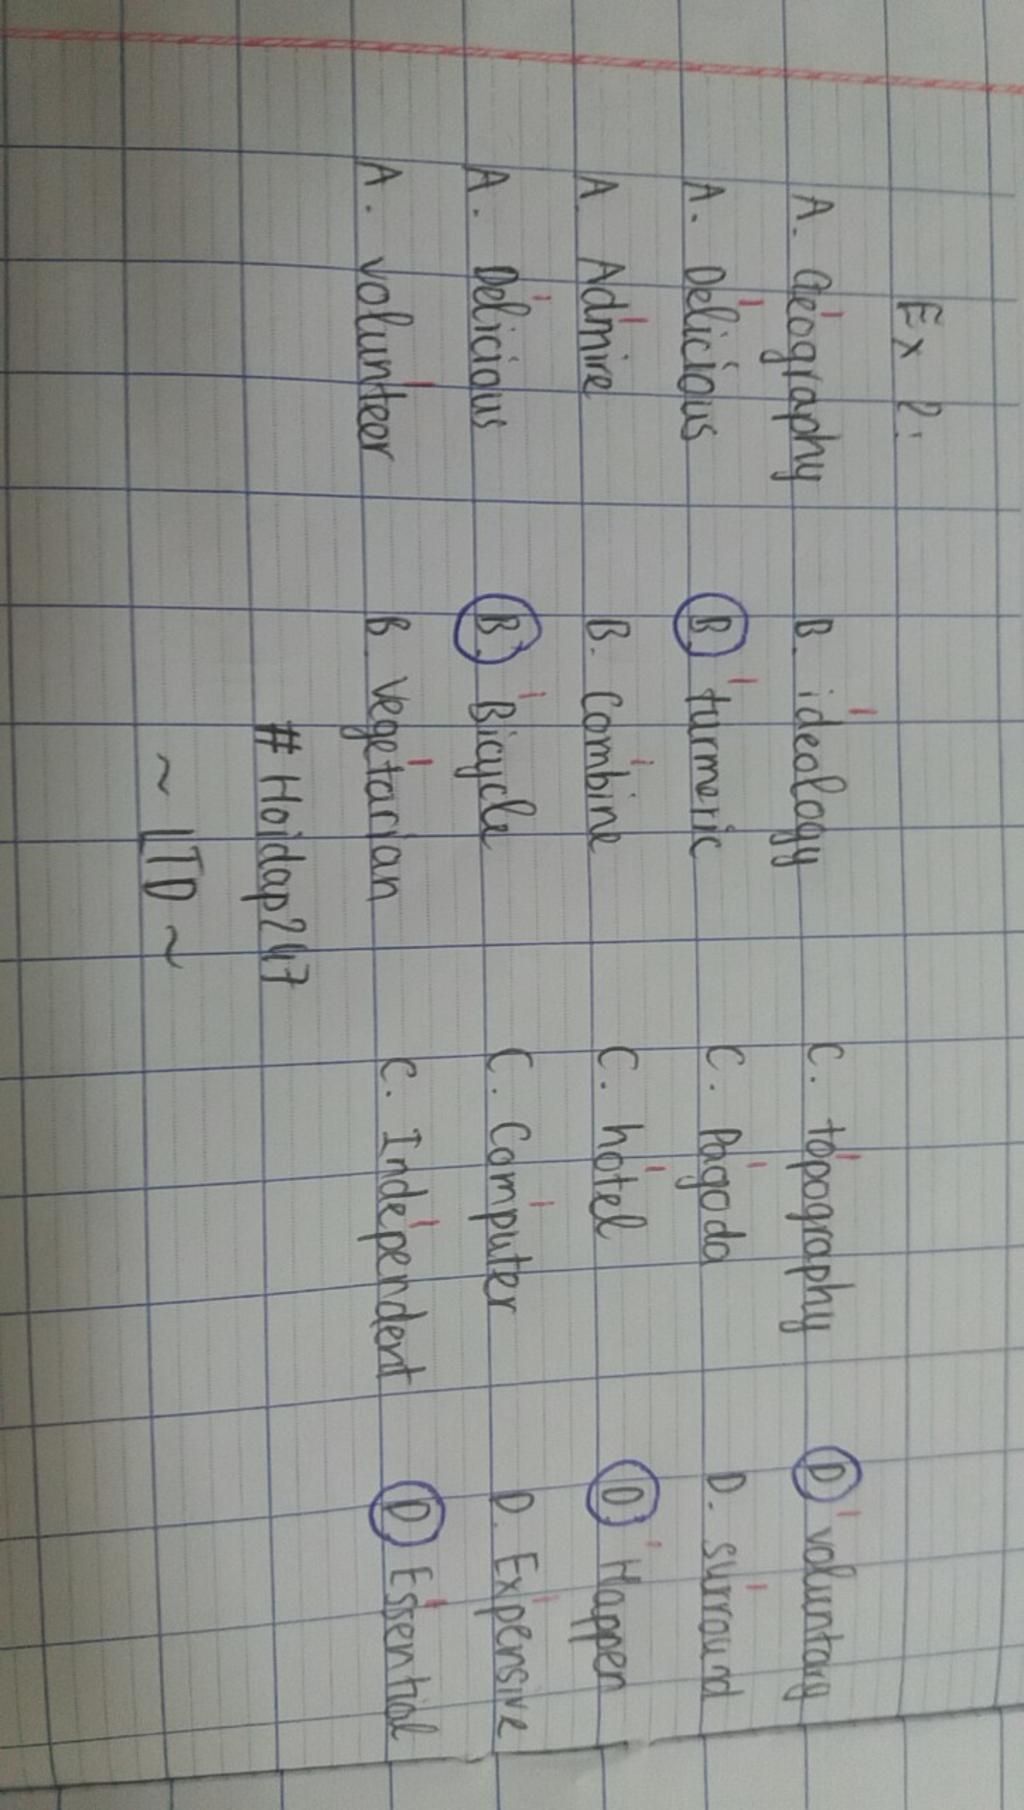 Ex 1:
A. Geography B. ideology C. topography D voluntary
A. Delicious B turmeric C. Pagoda D. surround
A. Admire B. Combine C. hotel D Happen
A. Delicious B. Bicycle C. Computer D. Expensive
A. volunteer B. vegetarian C. Independent D. Essential
# Hoidap247
~ LTD ~